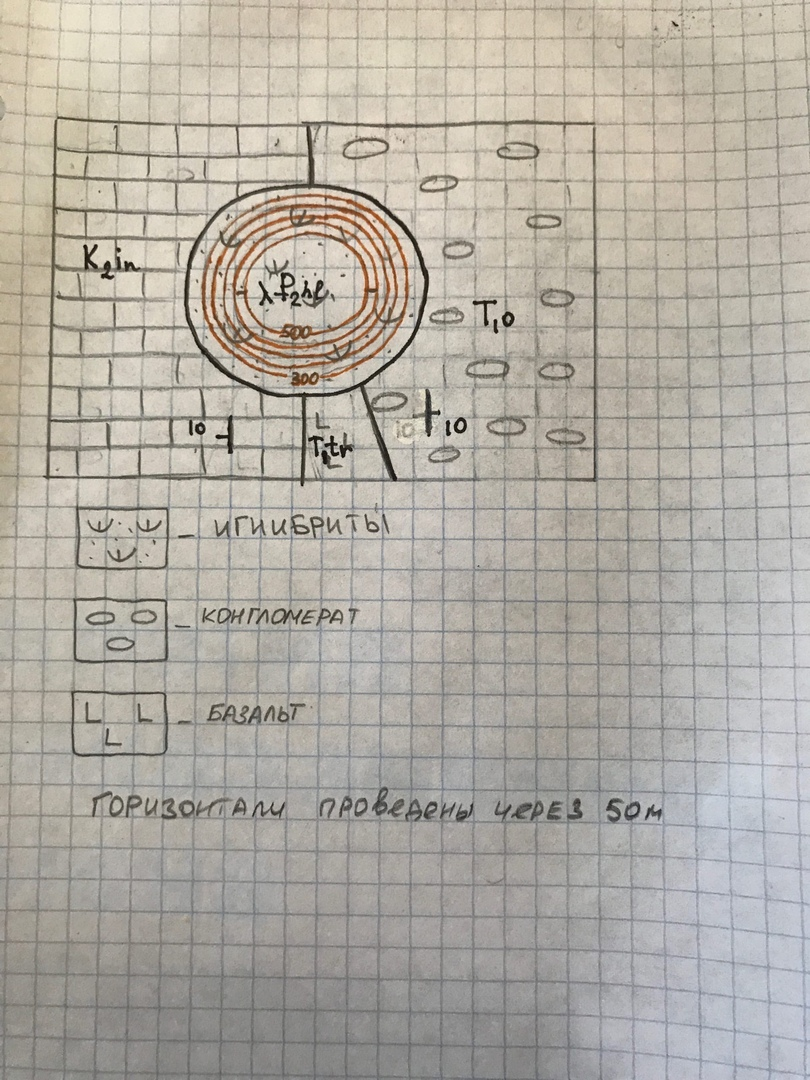 K₂in
λP₂hl
T₁o
500
300
10
10
10
T₂th
ИГНИБРИТЫ
КОНГЛОМЕРАТ
БАЗАЛЬТ
ГОРИЗОНТАЛИ ПРОВЕДЕНЫ ЧЕРЕЗ 50м